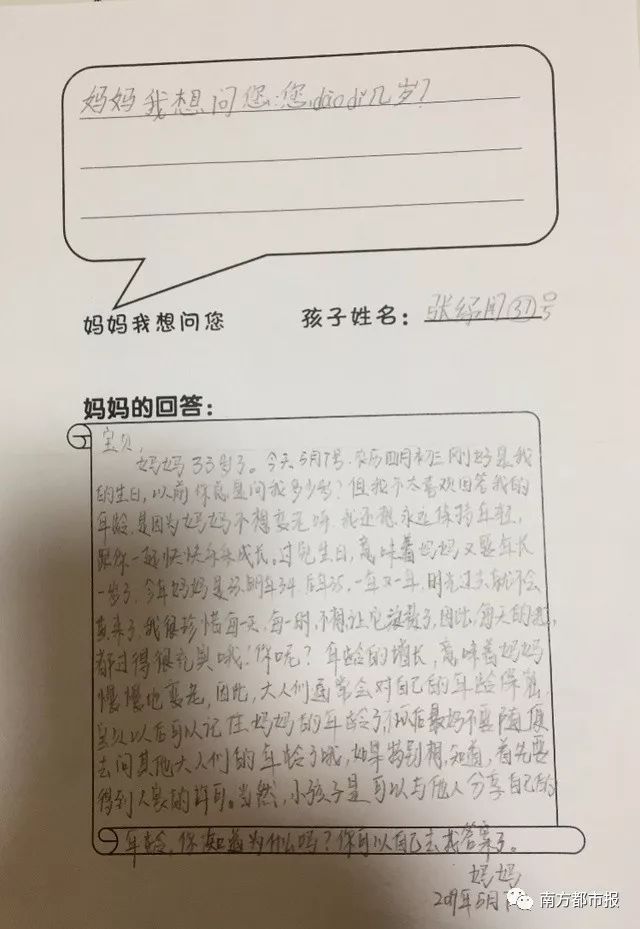 妈妈我想问您:您dào dǐ几岁?
妈妈我想问您
孩子姓名:张绍月㊲号
妈妈的回答:
宝贝,
妈妈33岁了。今天5月7号,农历四月初三刚好是我
的生日,以前你总是问我多少岁?但我不太喜欢回答我的
年龄,是因为妈妈不想变老呀,我还想永远保持年轻,
跟你一起快快乐乐成长。过完生日,意味着妈妈又要年长
一岁了,今年妈妈是33,明年34,后年35,一年又一年,时光过去就不会
再来了,我很珍惜每一天,每一时,不想让它浪费了,因此,每天的我
都过得很充实哦!你呢?年龄的增长,意味着妈妈
慢慢地变老,因此,大人们通常会对自己的年龄保密,
宝贝以后可以记住妈妈的年龄了,以后最好不要随便
去问其他大人们的年龄了哦,如果特别想知道,首先要
得到人家的许可。当然,小孩子是可以与他人分享自己的
年龄,你知道为什么吗?你可以自己去找答案了。
妈妈
2019年5月7
南方都市报